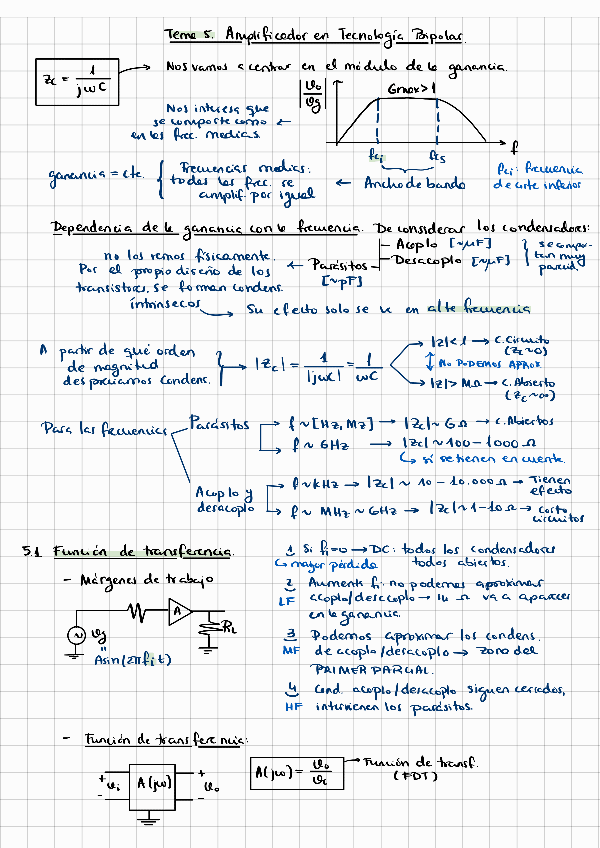 Tema 5. Amplificador en Tecnología Bipolar.
Zc = 1/jωC
Nos vamos a centrar en el módulo de la ganancia.
|vo/vg|
Gmax > 1
Nos interesa que
se comporte como
en las frec. medias.
f
fci
fcs
Ancho de banda
ganancia = cte.
Frecuencias medias:
todas las frec. se
amplif. por igual
fci: frecuencia
de corte inferior
Dependencia de la ganancia con la frecuencia. De considerar los condensadores:
Acoplo [~μF]
Desacoplo [~μF]
se compor-
tan muy
parecid.
Parásitos
[~pF]
no los vemos físicamente.
Por el propio diseño de los
transistores, se forman condens.
intrínsecos → Su efecto solo se ve en alta frecuencia
A partir de qué orden
de magnitud
despreciamos condens.
→ |Zc| = 1/|jωC| = 1/ωC
|Z| < 1 → C. Circuito
(Zc~0)
NO PODEMOS APROX.
|Z| > MΩ → C. Abierto
(Zc~∞)
Para las frecuencias
Parásitos
f ~ [Hz, Mz] → |Zc| ~ GΩ → c. Abiertos
f ~ GHz → |Zc| ~ 100 - 1000 Ω
↳ sí se tienen en cuenta.
Acoplo y
desacoplo
f ~ kHz → |Zc| ~ 10 - 10.000 Ω → Tienen
efecto
f ~ MHz ~ GHz → |Zc| ~ 1-10 Ω → Corto
circuitos
5.1 Función de transferencia.
- Márgenes de trabajo
A
vg
RL
"
A sin(2πfi t)
1 Si fi=0 → DC: todos los condensadores
↳ mayor pérdida todos abiertos.
2 Aumenta fi: no podemos aproximar
LF acoplo/desacoplo → Ω va a aparecer
en la ganancia.
3 Podemos aproximar los condens.
MF de acoplo/desacoplo → zona del
PRIMER PARCIAL.
4 Cond. acoplo/desacoplo siguen cerrados,
HF intervienen los parásitos.
- Función de transferencia:
+
vi
-
A(jω)
+
vo
-
A(jω) = vo/vi
→ Función de transf.
(FDT)